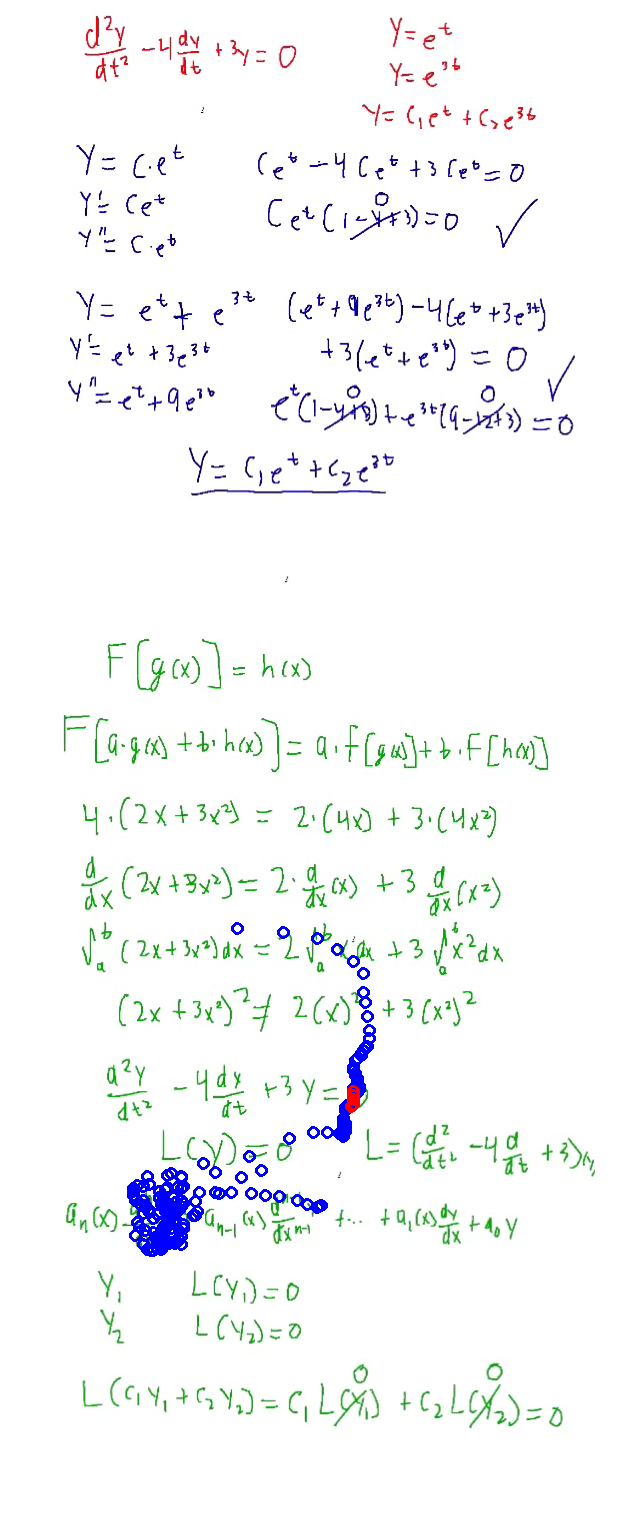 d²y/dt² - 4 dy/dt + 3y = 0
y = e^t
y = e^3t
y = c₁e^t + c₂e^3t
y = c·e^t
Ce^t - 4Ce^t + 3Ce^t = 0
y' = Ce^t
Ce^t(1-4+3) = 0 ✓
0
y'' = C·e^t
y = e^t + e^3t
(e^t + 9e^3t) - 4(e^t + 3e^3t)
y' = e^t + 3e^3t
+3(e^t + e^3t) = 0 ✓
y'' = e^t + 9e^3t
0 0
e^t(1-4+3) + e^3t(9-12+3) = 0
y = c₁e^t + c₂e^3t
F[g(x)] = h(x)
F[a·g(x) + b·h(x)] = a·F[g(x)] + b·F[h(x)]
4·(2x + 3x²) = 2·(4x) + 3·(4x²)
d/dx (2x + 3x²) = 2·d/dx (x) + 3 d/dx (x²)
∫ₐᵇ (2x + 3x²) dx = 2 ∫ₐᵇ x dx + 3 ∫ₐᵇ x² dx
(2x + 3x²)² ≠ 2(x)² + 3(x²)²
d²y/dt² - 4 dy/dt + 3y =
L(y) = 0
L = (d²/dt² - 4 d/dt + 3)
aₙ(x)
aₙ₋₁(x) dⁿ⁻¹/dxⁿ⁻¹ + ... + a₁(x) dy/dx + a₀y
y₁ L(y₁) = 0
y₂ L(y₂) = 0
0 0
L(c₁y₁ + c₂y₂) = c₁L(y₁) + c₂L(y₂) = 0